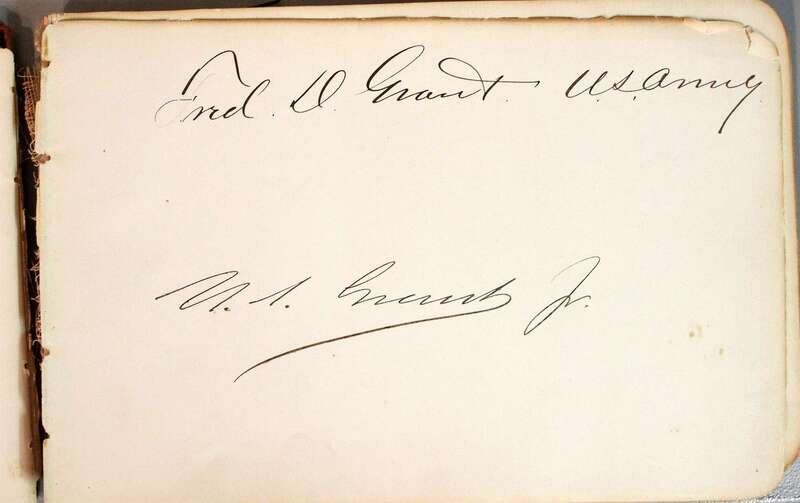 Fred. D. Grant. U.S. Army
U. S. Grant Jr.